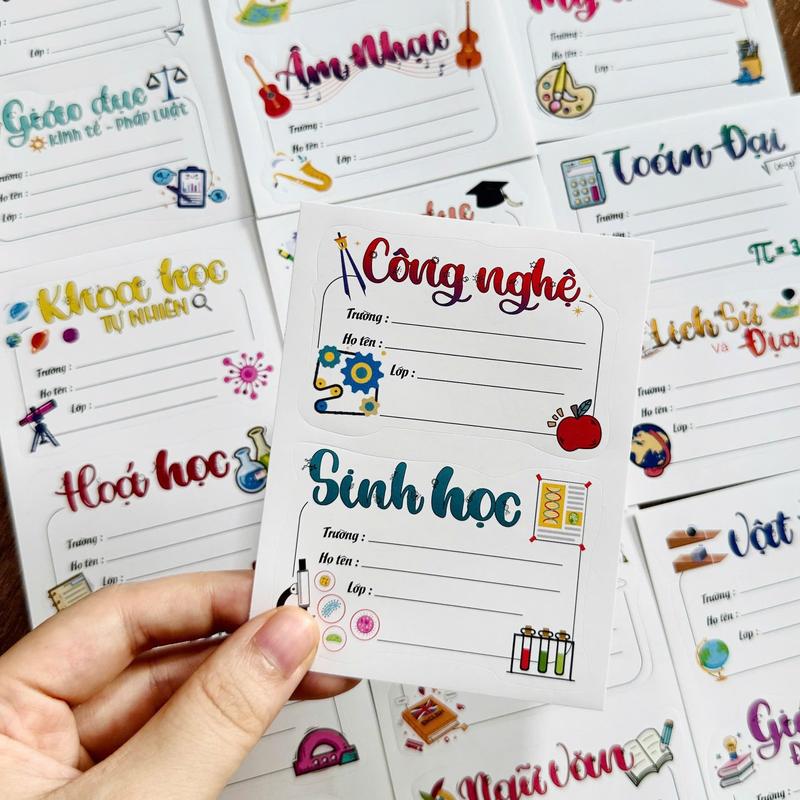 Lớp :
Giáo dục
Kinh tế - Pháp Luật
Họ tên :
Lớp :
Âm Nhạc
Trường :
Họ tên :
Lớp :
Trường :
Họ tên :
Lớp :
Toán Đại
Trường :
Họ tên :
π = 3
Khoa học
TỰ NHIÊN
Trường :
Họ tên :
Lớp :
Hoá học
Trường :
Họ tên :
Công nghệ
Trường :
Họ tên :
Lớp :
Sinh học
Trường :
Họ tên :
Lớp :
Lịch Sử
và Địa
Trường :
Họ tên :
Lớp :
Vật
Trường :
Họ tên :
Lớp :
Ngữ Văn